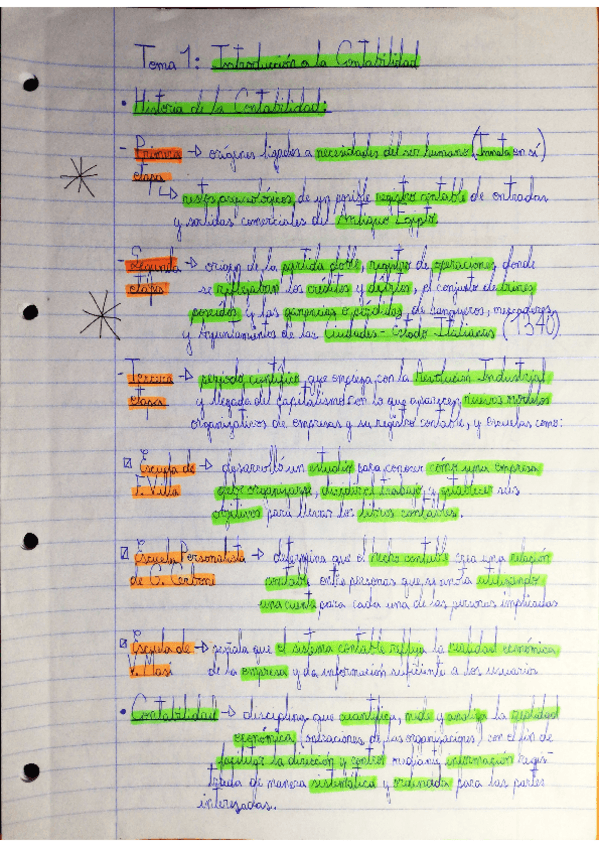 Tema 1: Introducción a la Contabilidad
• Historia de la Contabilidad:
- Primera → orígenes ligados a necesidades del ser humano (Innata en sí)
etapa
↳ restos arqueológicos de un posible registro contable de entradas
y salidas comerciales del Antiguo Egipto
- Segunda → origen de la partida doble, registro de operaciones, donde
etapa se reflejaban los créditos y débitos, el conjunto de bienes
poseídos y las ganancias o pérdidas de banqueros, mercaderes,
y Ayuntamientos de las ciudades-Estado Italianas (1340)
- Tercera → periodo científico que empieza con la Revolución Industrial
etapa y llegada del capitalismo con lo que aparecen nuevos modelos
organizativos de empresas y su registro contable, y escuelas como:
Escuela de → desarrolló un estudio para conocer cómo una empresa
F. Villa debe organizarse, dividir el trabajo y establecer sus
objetivos para llevar los libros contables.
Escuela Personalista → determina que el hecho contable crea una relación
de G. Cerboni contable entre personas que se anota utilizando
una cuenta para cada una de las personas implicadas
Escuela de → señala que el sistema contable refleja la realidad económica
V. Masi de la empresa y da información suficiente a los usuarios
• Contabilidad → disciplina que cuantifica, mide y analiza la realidad
económica (operaciones de las organizaciones) con el fin de
facilitar la dirección y control mediante información regis-
trada de manera sistemática y ordenada para las partes
interesadas.